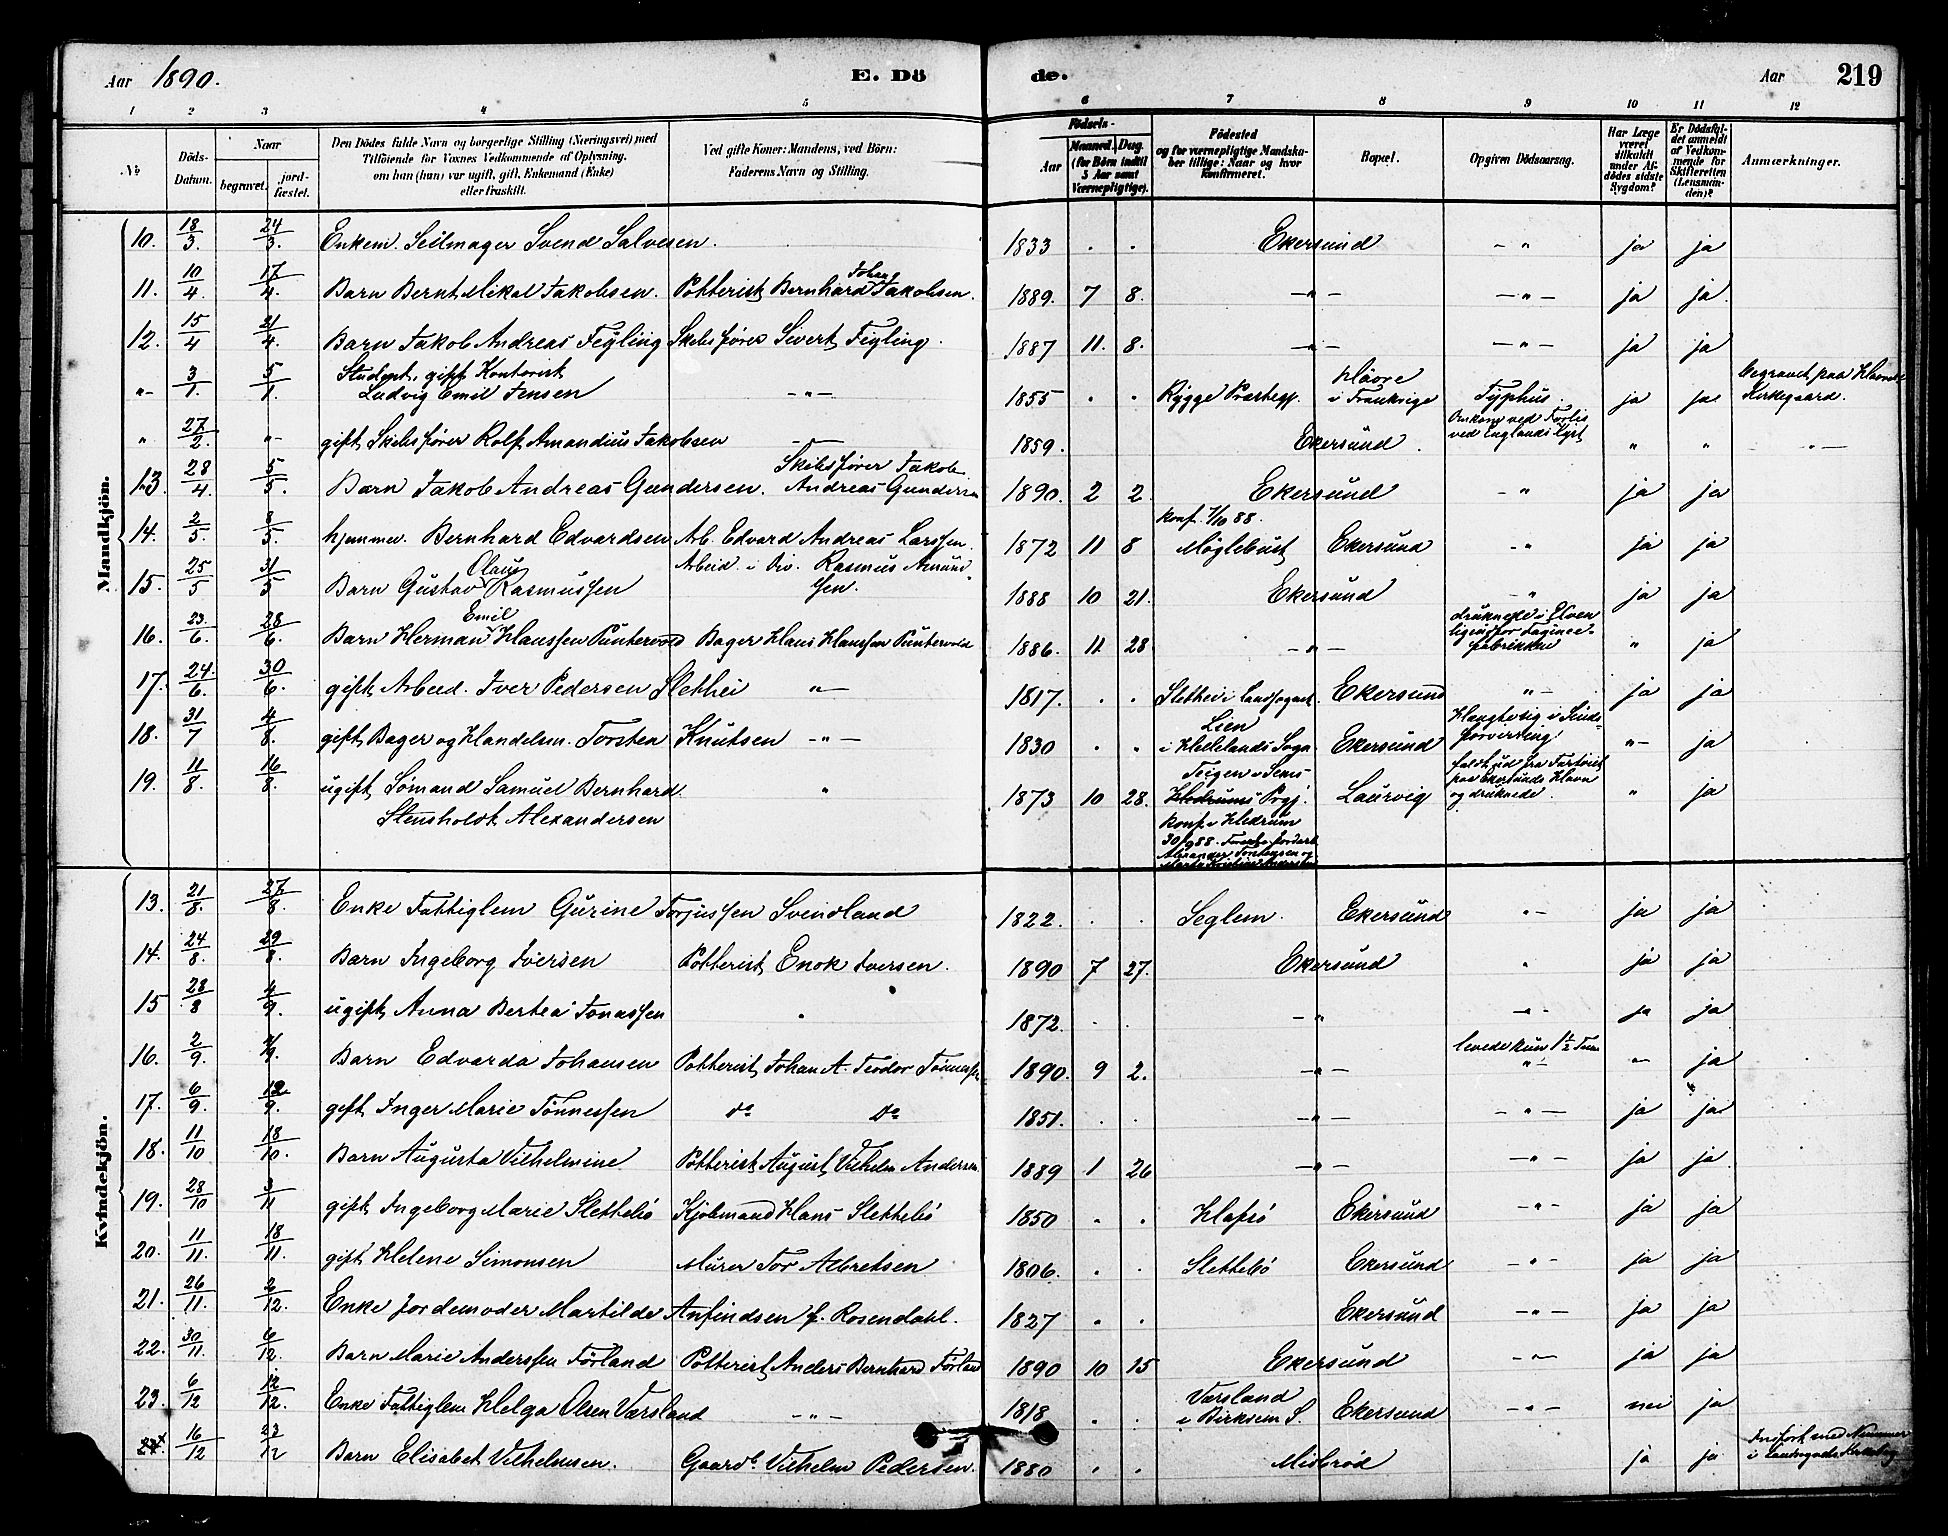 Aar 1890. E. Dö de. Aar 219
1 2 3 4 5 6 7 8 9 10 11 12
№ Döds-Datum. Naar begravet. jordfæstet. Den Dödes fulde Navn og borgerlige Stilling (Næringsvei) med Tilföiende for Voxnes Vedkommende af Oplysning, om han (hun) var ugift, gift, Enkemand (Enke) eller fraskilt. Ved gifte Koner: Mandens, ved Börn: Faderens Navn og Stilling. Födsels- Aar Maaned. Dag. (for Börn indtil 5 Aar samt Værnepligtige). Födested og for værnepligtige Mandskaber tillige: Naar og hvor konfirmeret. Bopæl. Opgiven Dödsaarsag. Har Læge været tilkaldt under Afdödes sidste Sygdom? Er Dödsfaldet anmeldt af Vedkommende for Skifteretten (Lensmanden)? Anmærkninger.
Mandkjön.
10. 18/3. 24/3. Enkem. Seilmager Svend Salvesen. 1833 . . Ekersund - " ja ja
11. 10/4. 17/4. Barn Bernt Mikal Jakobsen. Potterist Bernhard Johan Jakobsen. 1889. 7 8. - " - - " - ja ja.
12. 15/4 21/4. Barn Jakob Andreas Feyling Skibsfører Sivert Feyling. 1887 11. 8. - " - - " - ja ja
"- 3/1. 5/1. Student, gift Kontorist Ludvig Emil Jensen - " - 1855 . . Rygge Præstegj. Havre i Frankrige Typhus. ja ja begravet paa Havre Kirkegaard.
" 27/2. "- gift Skibsfører Rolf Amandius Jakobsen - 1859. Ekersund. Omkom ved Forlis ved Englands Kyst " " - " -
13. 28/4. 5/5. Barn Jakob Andreas Gundersen. Skibsfører Jakob Andreas Gundersen 1890. 2 2. Ekersund - " ja ja
14. 2/5. 8/5. hjemmev. Bernhard Edvardsen Arb. Edvard Andreas Larssen. 1872 11 8 konf. 7/10 88. Møglebust Ekersund - " ja ja
15. 25/5 31/5 Barn Gustav Olaus Rasmussen Arbeid. i Div. Rasmus Amundsen. 1888 10 21. Ekersund - " ja ja
16. 23/6. 28/6. Barn Herman Emil Hanssen Puntervold Bager Hans Hanssen Puntervold 1886. 11 28 - " - druknede i Elven ligenfor Fayancefabrikken " ja
17. 24/6. 30/6. gift Arbeid. Iver Pedersen Slethei " - 1817. . . Slethei i Landsognet. Ekersund " - ja ja
18. 31/7 4/8. gift Bager og Handelsm. Torsten Knutsen - " - 1830 . . Lien i Hellelands Sogn Ekersund Hængte sig i Sindsforvirring " - ja
19. 11/8. 16/8. ugift Sømand Samuel Bernhard Stensholdt Alexandersen " 1873 10 28. Teigen i Hedrums Prgj. konf. i Hedrum 30/9 88. Laurvig faldt ud fra Fartøiet paa Ekersunds Havn og druknede. " ja
Kvindekjön.
13. 21/8. 27/8. Enke Fattiglem Gurine Torjussen Svendland 1822. . . Seglem. Ekersund " - ja ja
14. 24/8. 29/8. Barn Ingeborg Iversen Potterist Enok Iversen. 1890 7 27. Ekersund " ja ja
15 28/8 4/9. ugift Anna Bertea Jonassen . 1872. . . - " - " - ja ja
16. 2/9. /9. Barn Edvarda Johansen Potterist Johan A. Teodor Tønnessen 1890. 9 2. - " - levede kun 1 1/2 Time " - " ja
17. 6/9. 12/9. gift Inger Marie Tønnessen do do 1851. . . - " - - " - ja ja
18. 11/10 18/10. Barn Augusta Vilhelmine Potterist August Vilhelm Andersen 1889 1 26 - " - - " - ja ja.
19. 28/10 3/11 gift Ingeborg Marie Slettebø Kjøbmand Hans Slettebø 1850 . . Hafsø Ekersund - " - ja ja
20. 11/11. 18/11. gift Helene Simonsen Murer Tor Albretsen 1806. . . Slettebø Ekersund - " - ja ja
21. 26/11. 2/12. Enke Jordemoder Martilde Anfindsen f. Rosendahl. 1827 . . Ekersund - " - ja ja
22. 30/11. 6/12. Barn Marie Anderssen Førland Potterist Anders Bernhard Førland 1890 10 15 Ekersund - " - ja ja
23. 6/12 12/12. Enke Fattiglem Helga Olsen Værsland - " - 1818 . . Værsland i Birkrem S. Ekersund - " - nei ja
24x 16/12 23/12 Barn Elisabet Vilhelmsen. Gaardb. Vilhelm Pedersen. 1880 . . Misbrød ja ja Indført med Nummer i